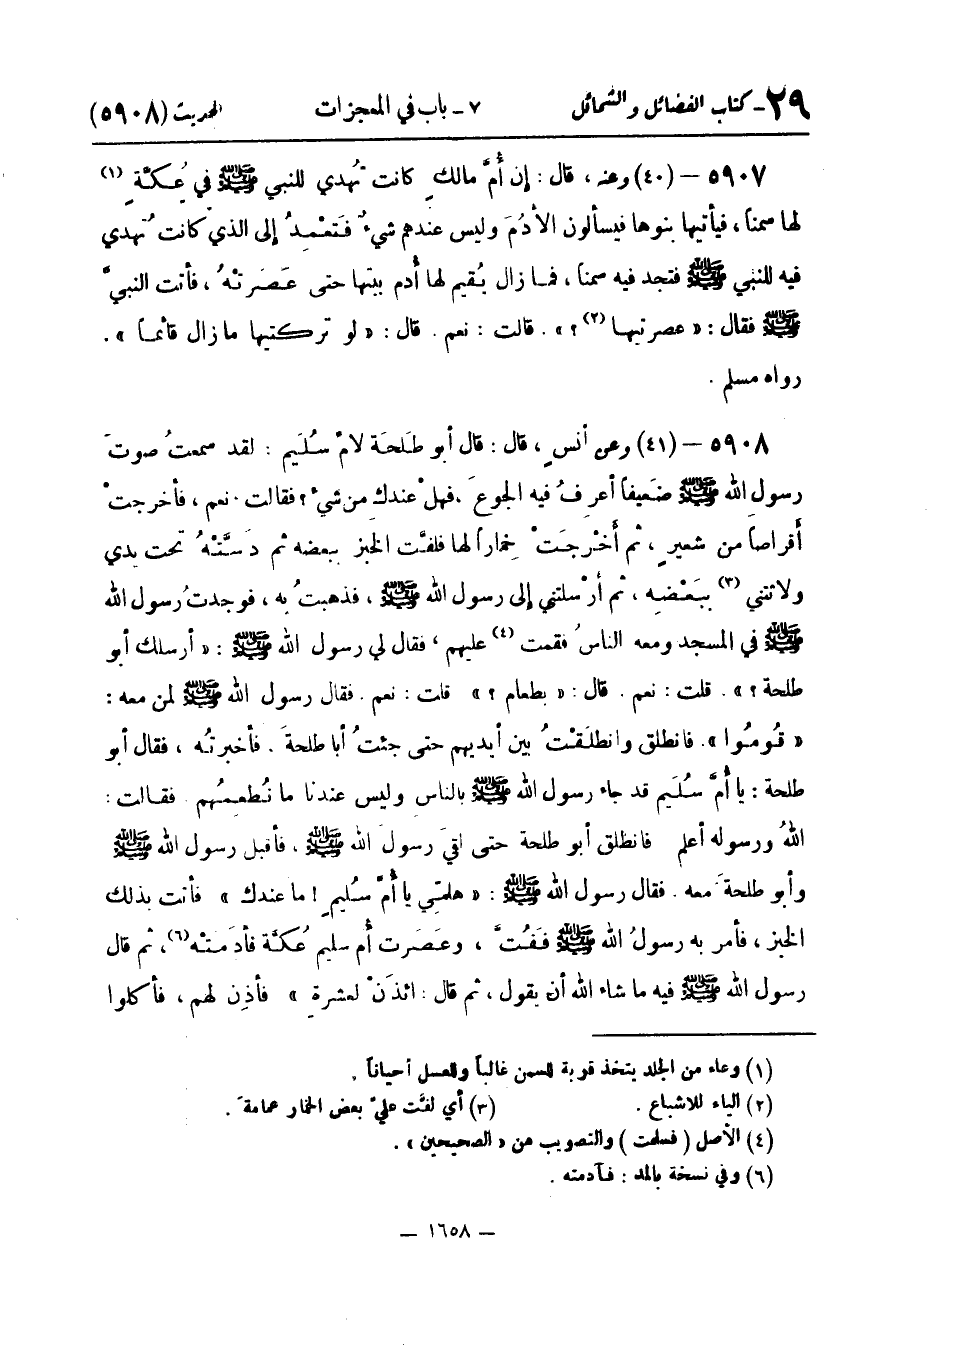 ٢٩ - كتاب الفضائل والشمائل ٧ - باب في المعجزات الحديث (٥٩٠٨)
٥٩٠٧ - (٤٠) وعنه ، قال : إن أُمَّ مالكٍ كانت تُهدي للنبي ﷺ في عُكَّةٍ (١)
لها سمناً ، فيأتيها بنوها فيسألون الأُدُمَ وليس عندهم شيءٌ فَتَعْمِدُ إلى الذي كانت تُهدي
فيه للنبي ﷺ فتجد فيه سمناً ، فما زال يُقيم لها أُدم بيتها حتى عَصَرَتْهُ ، فأتت النبيَّ
ﷺ فقال : « عصرتيها (٢) ؟ » . قالت : نعم . قال : « لو تركتيها ما زال قائماً » .
رواه مسلم .
٥٩٠٨ - (٤١) وعن أنسٍ ، قال : قال أبو طَلحَة لأمِّ سُلَيم : لقد سمعتُ صوتَ
رسول الله ﷺ ضَعيفاً أعرِفُ فيه الجوعَ ، فهلْ عندكِ من شيءٍ ؟ فقالت . نعم ، فأخرجتْ
أقراصاً من شعيرٍ ، ثم أَخْرجَتْ خماراً لها فلفَّت الخبز ببعضه ثم دَسَّتْهُ تحت يدي
ولاثتني (٣) بِبَعْضِه ، ثم أرْسلتني إلى رسول الله ﷺ ، فذهبتُ به ، فوجدتُ رسول الله
ﷺ في المسجد ومعه الناسُ فقمت (٤) عليهم ، فقال لي رسول الله ﷺ : « أرسلك أبو
طلحة ؟ » . قلت : نعم . قال : « بطعام ؟ » قلت : نعم . فقال رسول الله ﷺ لمن معه :
« قُومُوا » . فانطلق وانطلَقْتُ بين أيديهم حتى جئتُ أبا طلحةَ . فأخبرتُه ، فقال أبو
طلحة : يا أُمَّ سُلَيم قد جاء رسول الله ﷺ بالناس وليس عندنا ما نُطعِمُهم . فقالت :
اللهُ ورسوله أعلم فانطلق أبو طلحة حتى لقيَ رسولَ الله ﷺ ، فأقبل رسول الله ﷺ
وأبو طلحةَ معه . فقال رسول الله ﷺ : « هلمِّي يا أُمَّ سُليمٍ ! ما عندك » فأتت بذلك
الخبز ، فأمر به رسولُ الله ﷺ فَفُتَّ ، وعَصَرت أُم سليم عُكَّة فأدَمَتْه (٦) ، ثم قال
رسول الله ﷺ فيه ما شاء الله أن يقول ، ثم قال : ائذَنْ لعشرةٍ » فأذِن لهم ، فأكلوا
(١) وعاء من الجلد يتخذ قربة للسمن غالباً وللعسل أحياناً .
(٢) الياء للاشباع . (٣) أي لفَّت عليَّ بعض الخمار عمامةً .
(٤) الأصل ( فسلمت ) والتصويب من « الصحيحين » .
(٦) وفي نسخة بالمد : فآدمته .
— ١٦٥٨ —